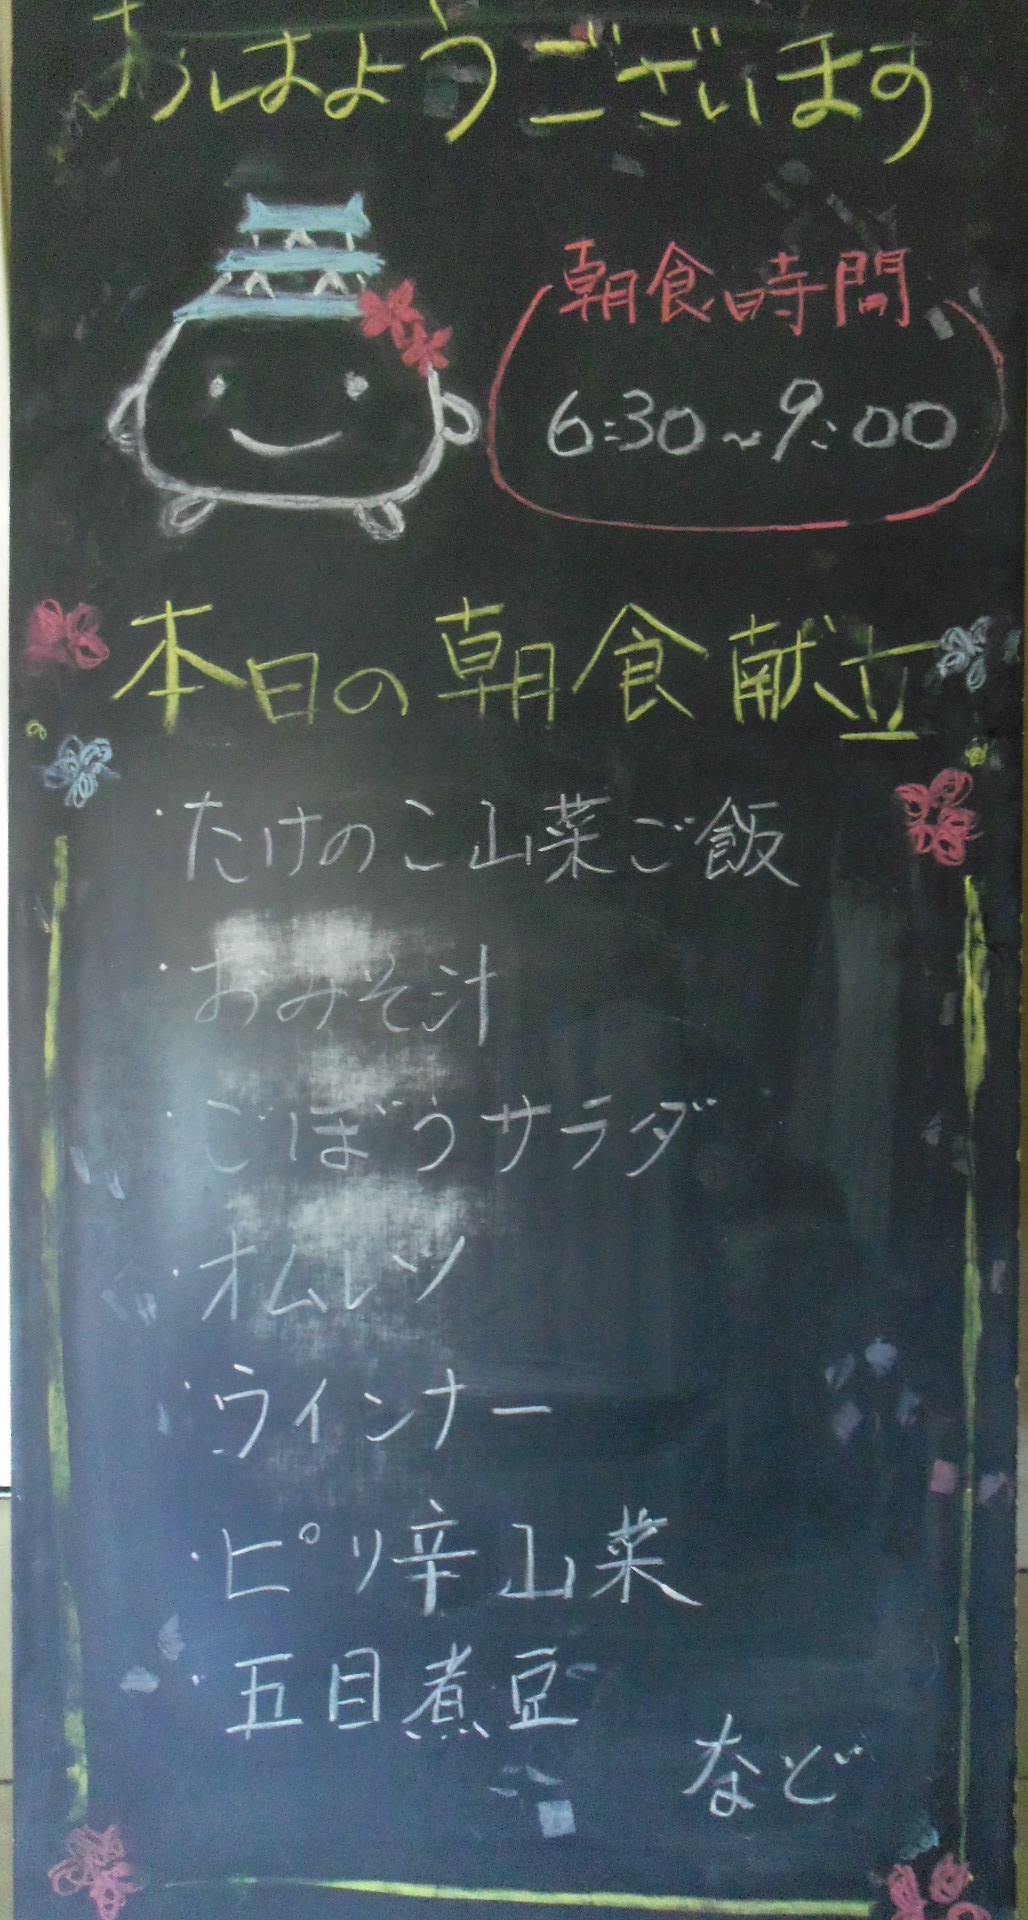 おはようございます
朝食時間
6:30~9:00
本日の朝食献立
・たけのこ山菜ご飯
・おみそ汁
・ごぼうサラダ
・オムレツ
・ウインナー
・ピリ辛山菜
・五目煮豆
など